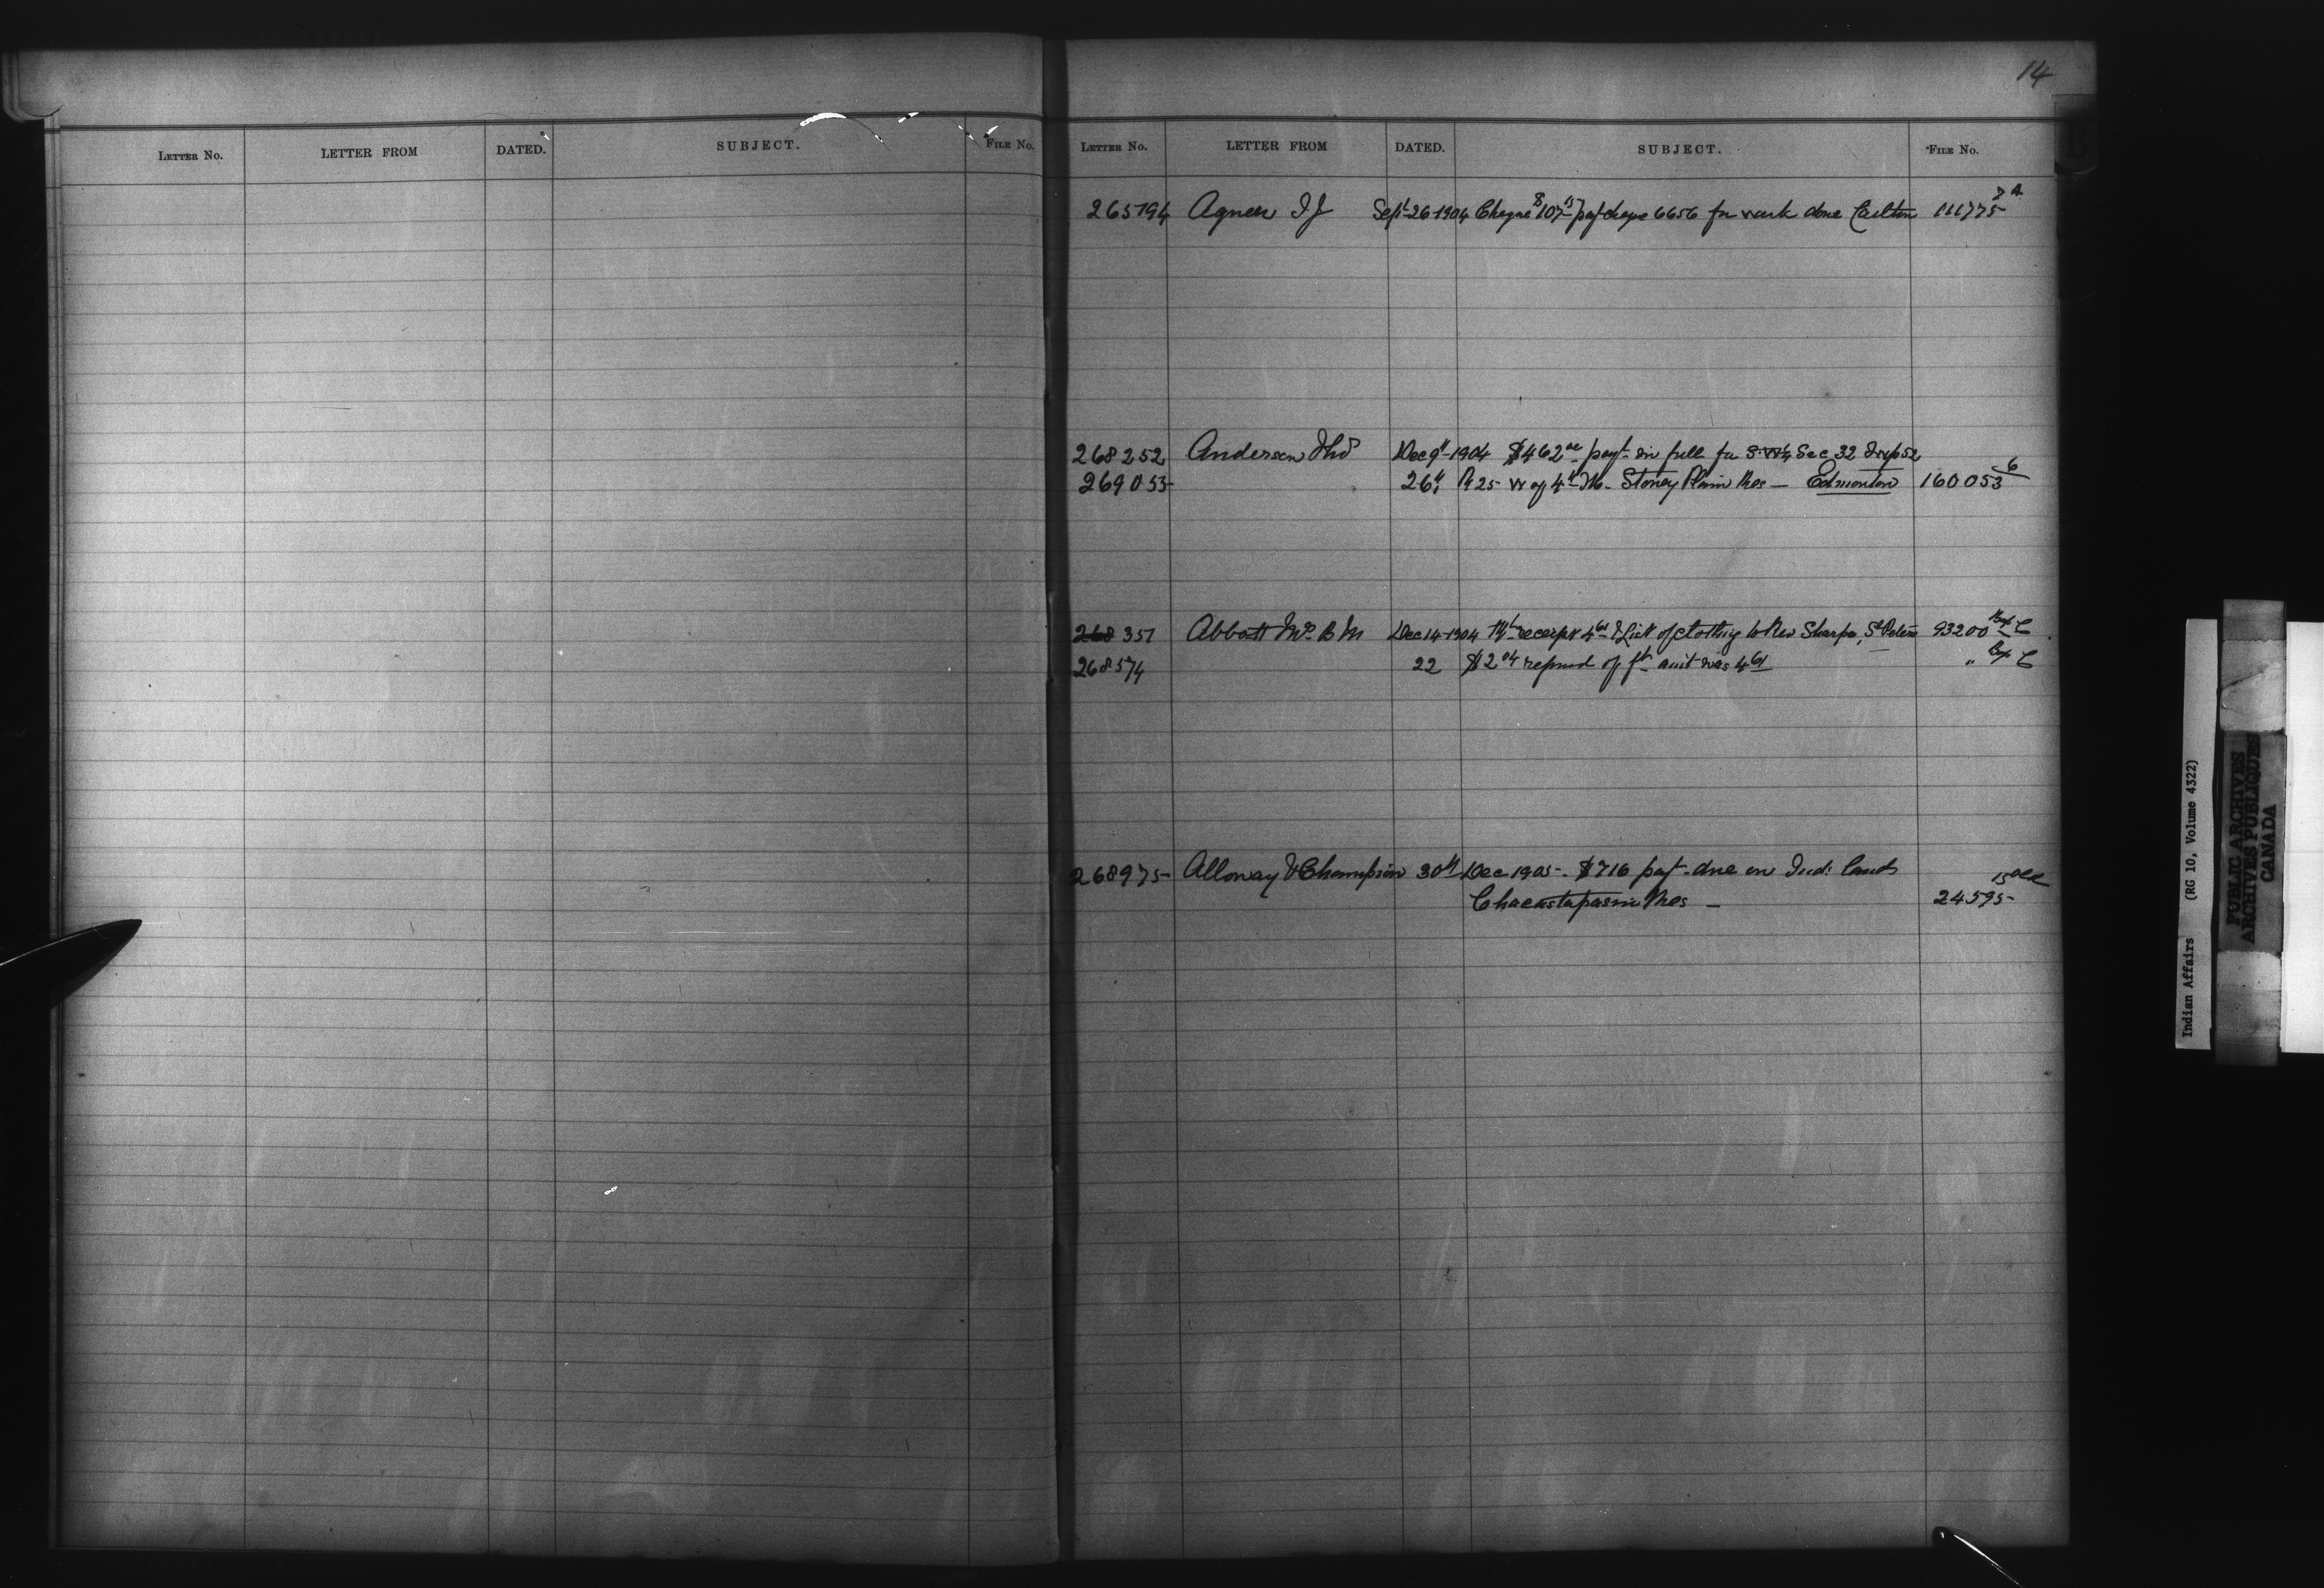 14
LETTER No. LETTER FROM DATED. SUBJECT. FILE No.
LETTER No. LETTER FROM DATED. SUBJECT. FILE No.
265794 Agnew Sept 26-1904 Cheque $107 pay cheque 6656 for work done Carlton 111775
268252 Anderson Thos Dec 9th 1904 $462 payt in full for S.W¼ Sec 32 Twp 52
269053 26th R 25 W of 4th M. Stoney Plain Res — Edmonton 160053 6
268351 Abbott Mrs B M Dec 14-1904 receipt & List of clothing to Rev Sharpe, St Peters 93200
268574 22 $2 04 refund of amt was 4 61 "
268975 Alloway & Champion 30th Dec 1905 - $716 payt due on Ind: lands
Chacastapasin Res — 24595
Indian Affairs (RG 10, Volume 4322)
PUBLIC ARCHIVES
ARCHIVES PUBLIQUES
CANADA